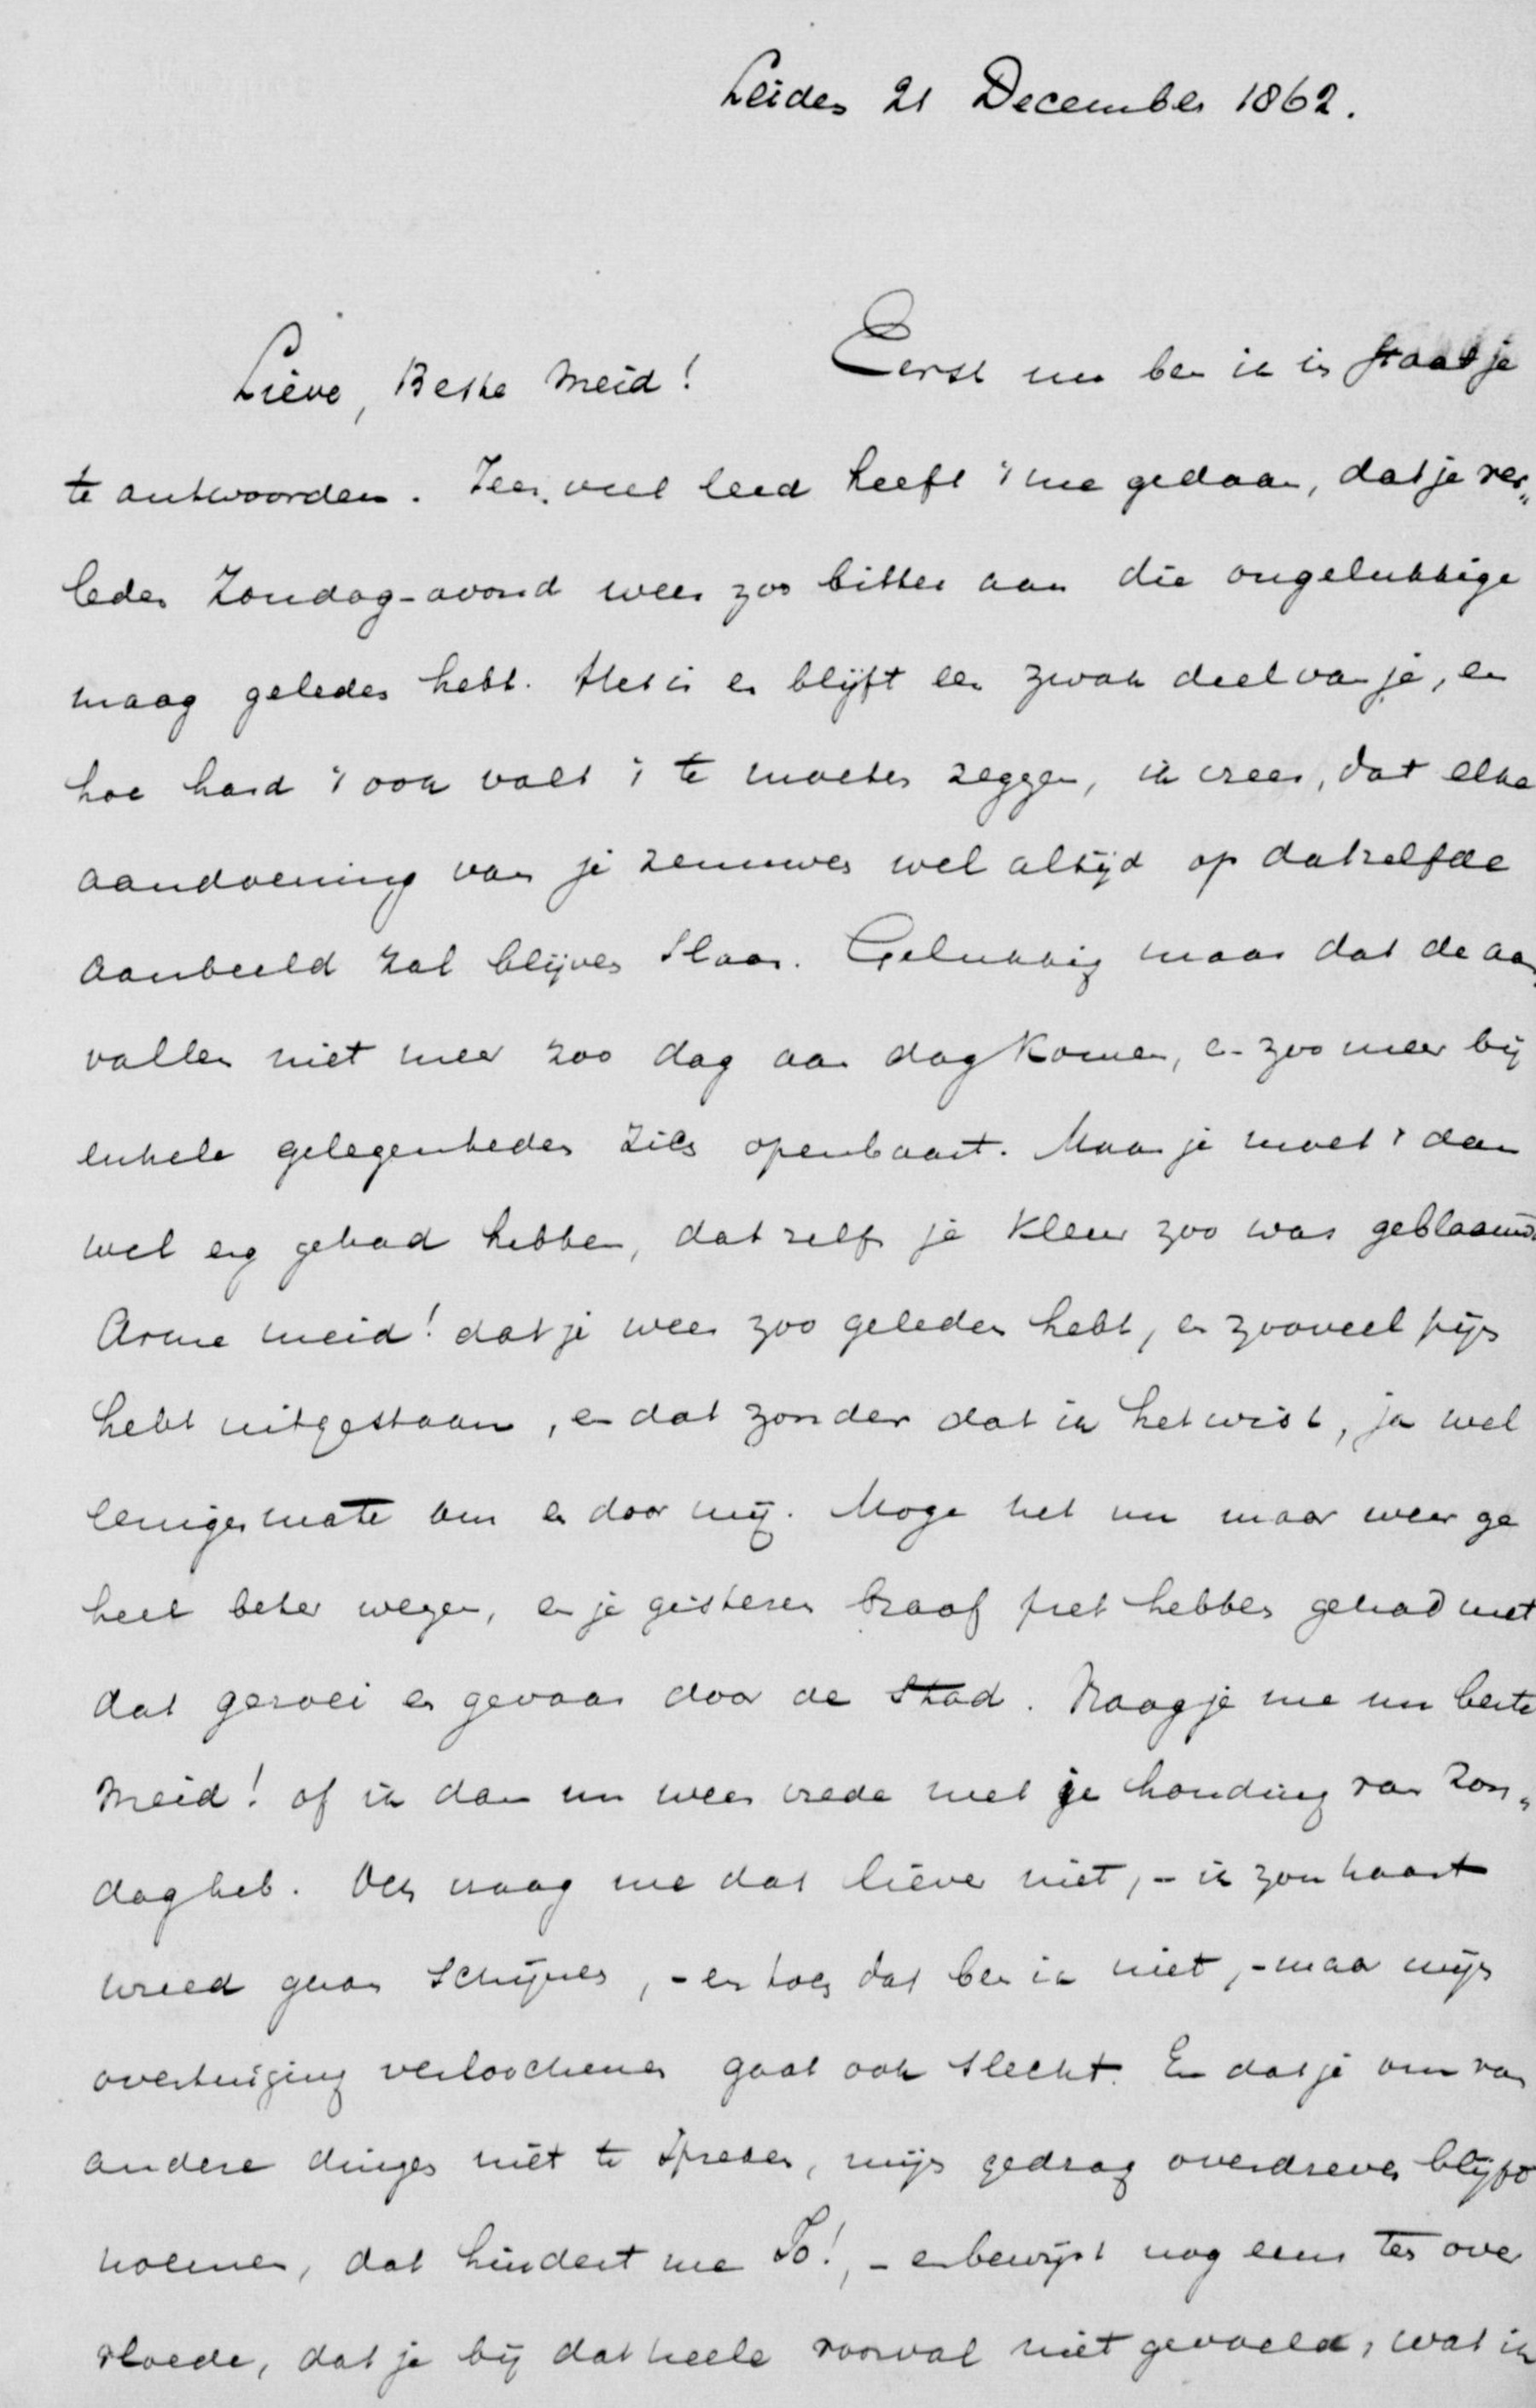 Leiden 21 December 1862.
Lieve, Beste Meid! Eerst nu ben ik in staat je
te antwoorden. Zeer veel leed heeft 't me gedaan, dat je ver„
leden Zondag-avond weer zoo bitter aan die ongelukkige
maag geleden hebt. Het is en blijft een zwak deel van je, en
hoe hard 't ook valt 't te moeten zeggen, ik vrees, dat elke
aandoening van je zenuwen wel altijd op datzelfde
aanbeeld zal blijven slaan. Gelukkig maar dat de aan„
vallen niet meer zoo dag aan dag komen, en zoo meer bij
enkele gelegenheden zich openbaart. Maar je moet 't dan
wel erg gehad hebben, dat zelfs je kleur zoo was geblaamd.
Arme meid! dat je weer zoo geleden hebt, en zooveel pijn
hebt uitgestaan, en dat zonder dat ik het wist, ja wel
eenigermate om en door mij. Moge het nu maar weer ge
heel beter wezen, en je gisteren braaf pret hebben gehad met
dat geroei en gevaar door de stad. Vraag je me nu beste
Meid! of ik dan nu weer vrede met je houding van Zon„
dag heb. Och vraag me dat liever niet, – ik zou haast
wreed gaan schijnen, – en toch dat ben ik niet, – maar mijn
overtuiging verloochenen gaat ook slecht. En dat je om van
andere dingen niet te spreken, mijn gedrag overdreven blijft
noemen, dat hindert me To!, – en bewijst nog eens ten over
vloede, dat je bij dat heele voorval niet gevoeld, wat ik